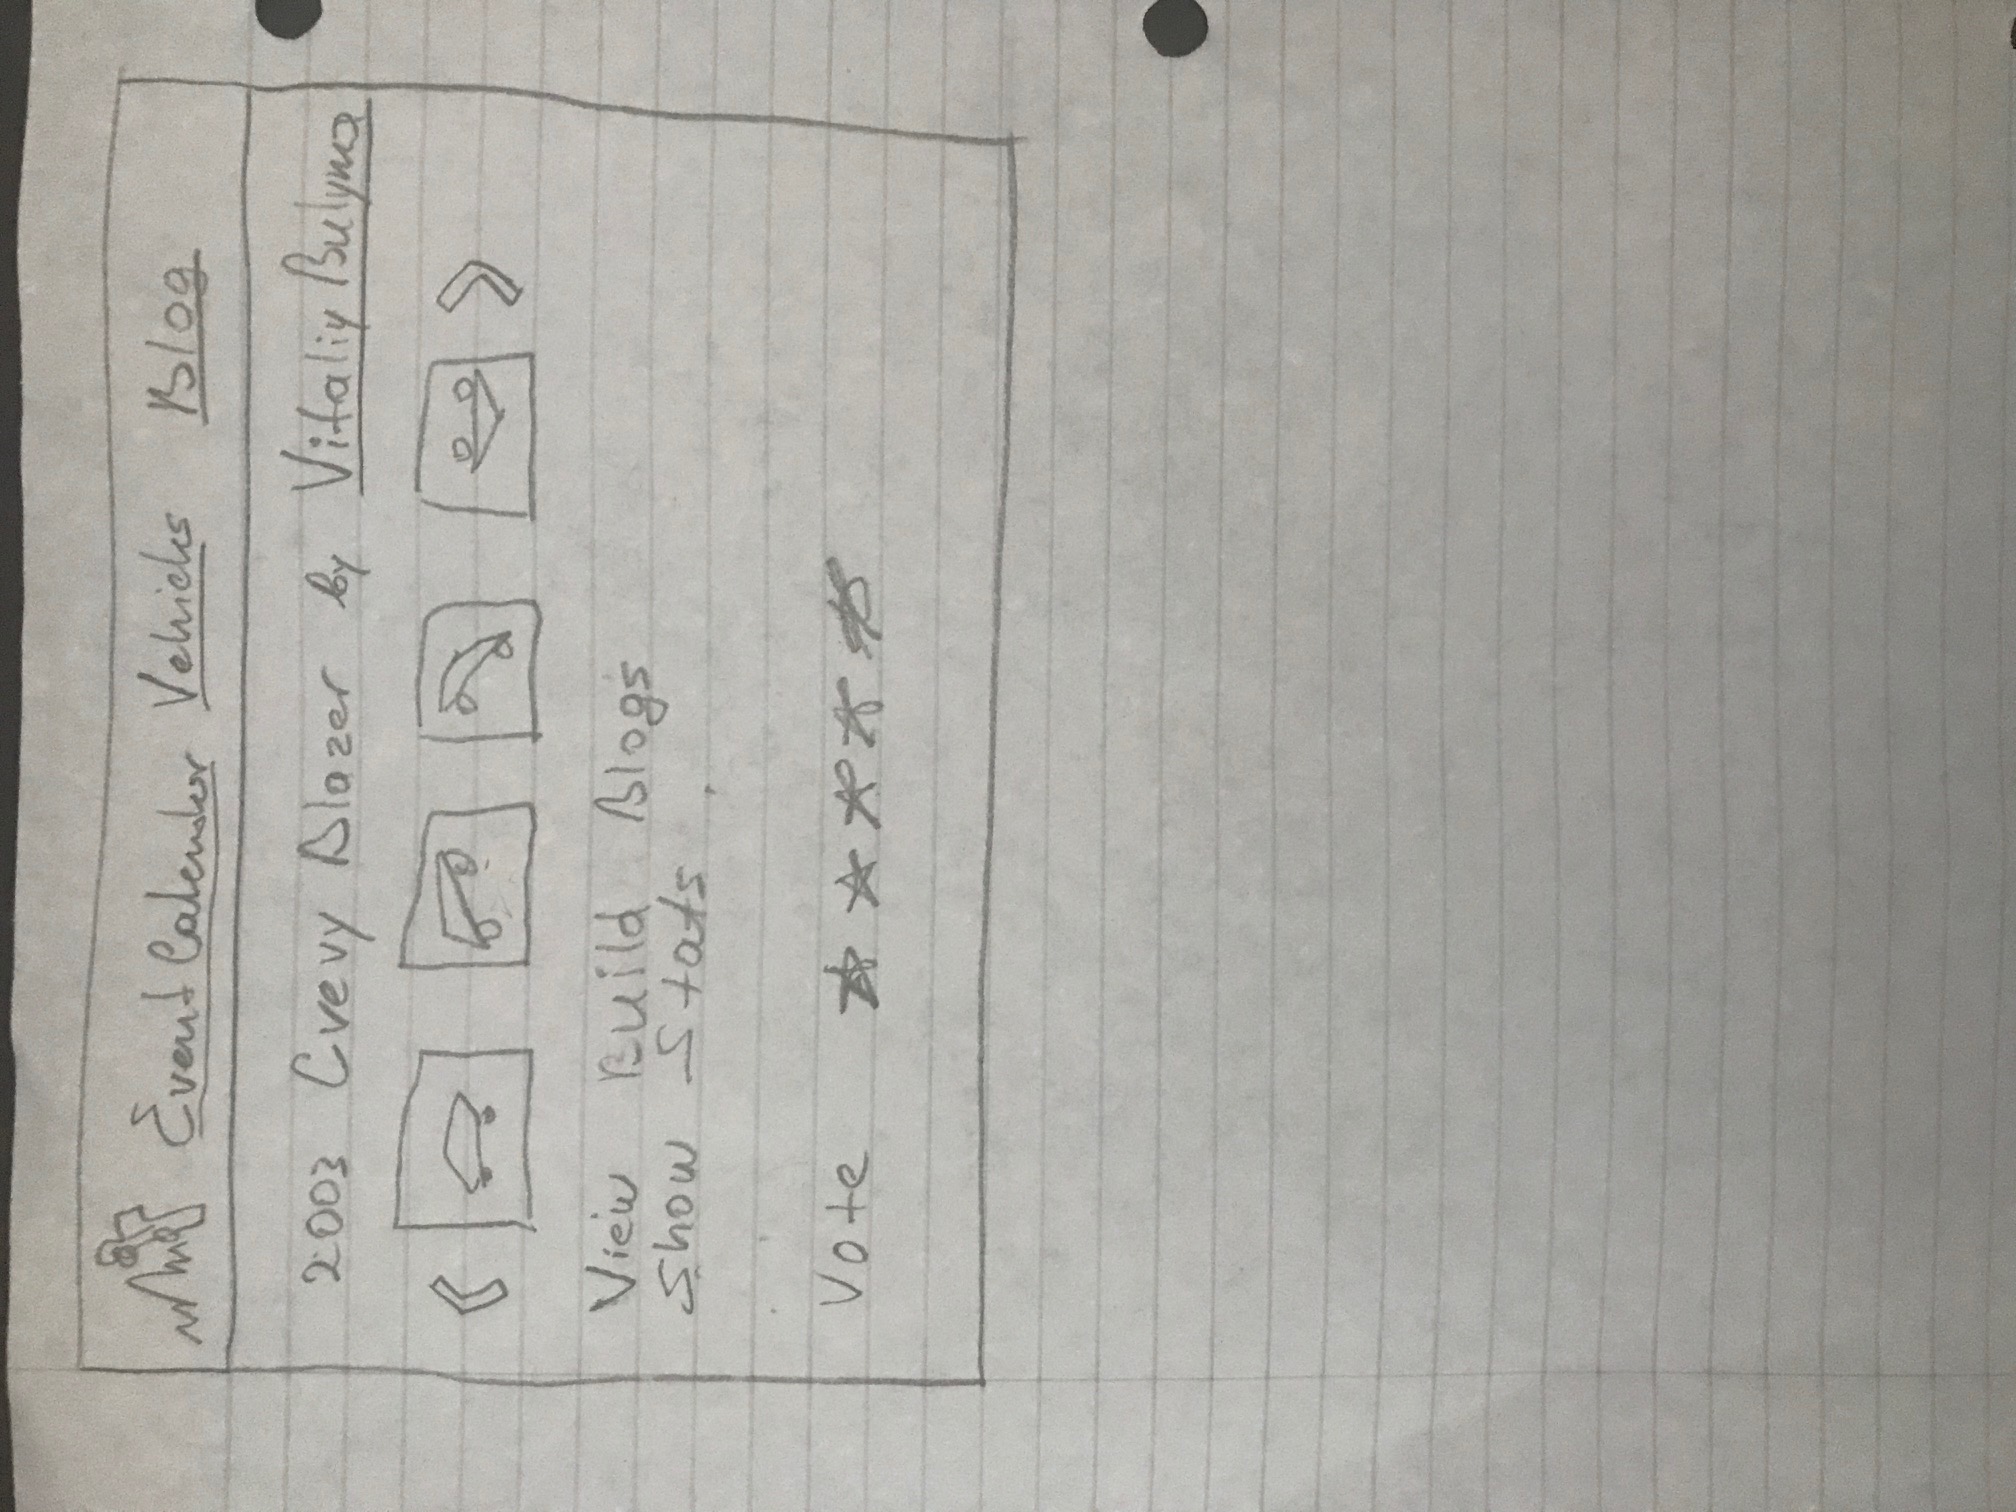 Event Calendar Vehicles Blog
2003 Cvevy Blazer by Vitaliy Bulyma
View Build Blogs
Show Stats
Vote